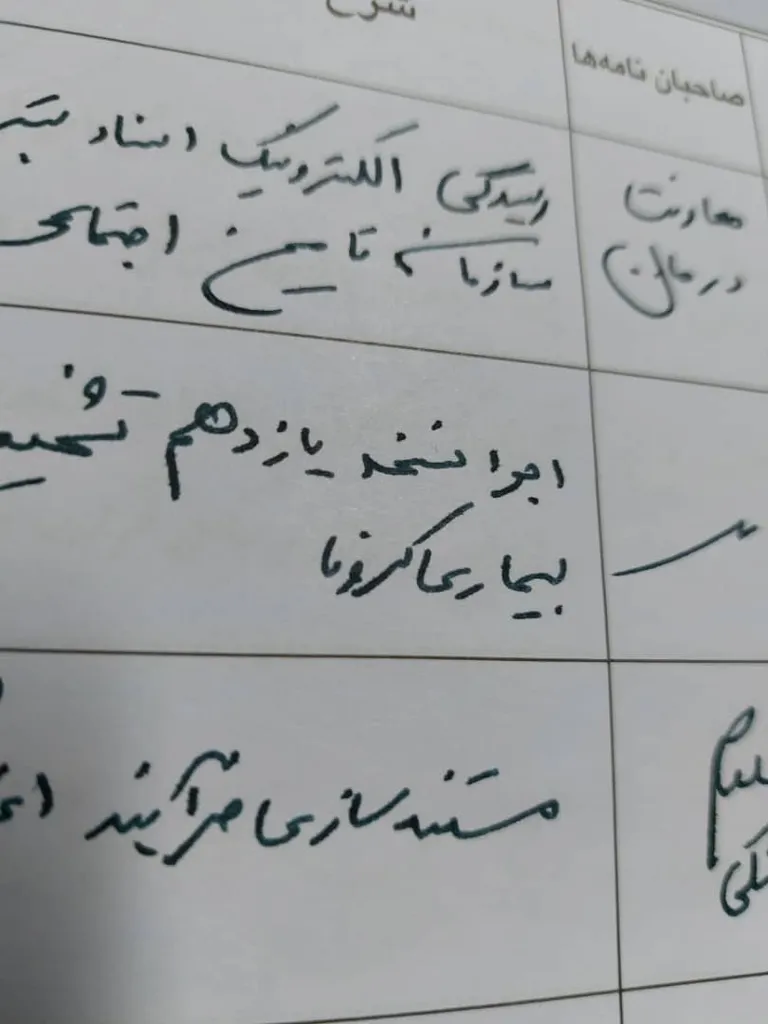 صاحبان نامه‌ها
شرح
معاونت
درمان
رسیدگی الکترونیک اسناد
سازمان تامین اجتماعی
اجرا نسخه یازدهم
بیماری کرونا
مستندسازی فرآیند